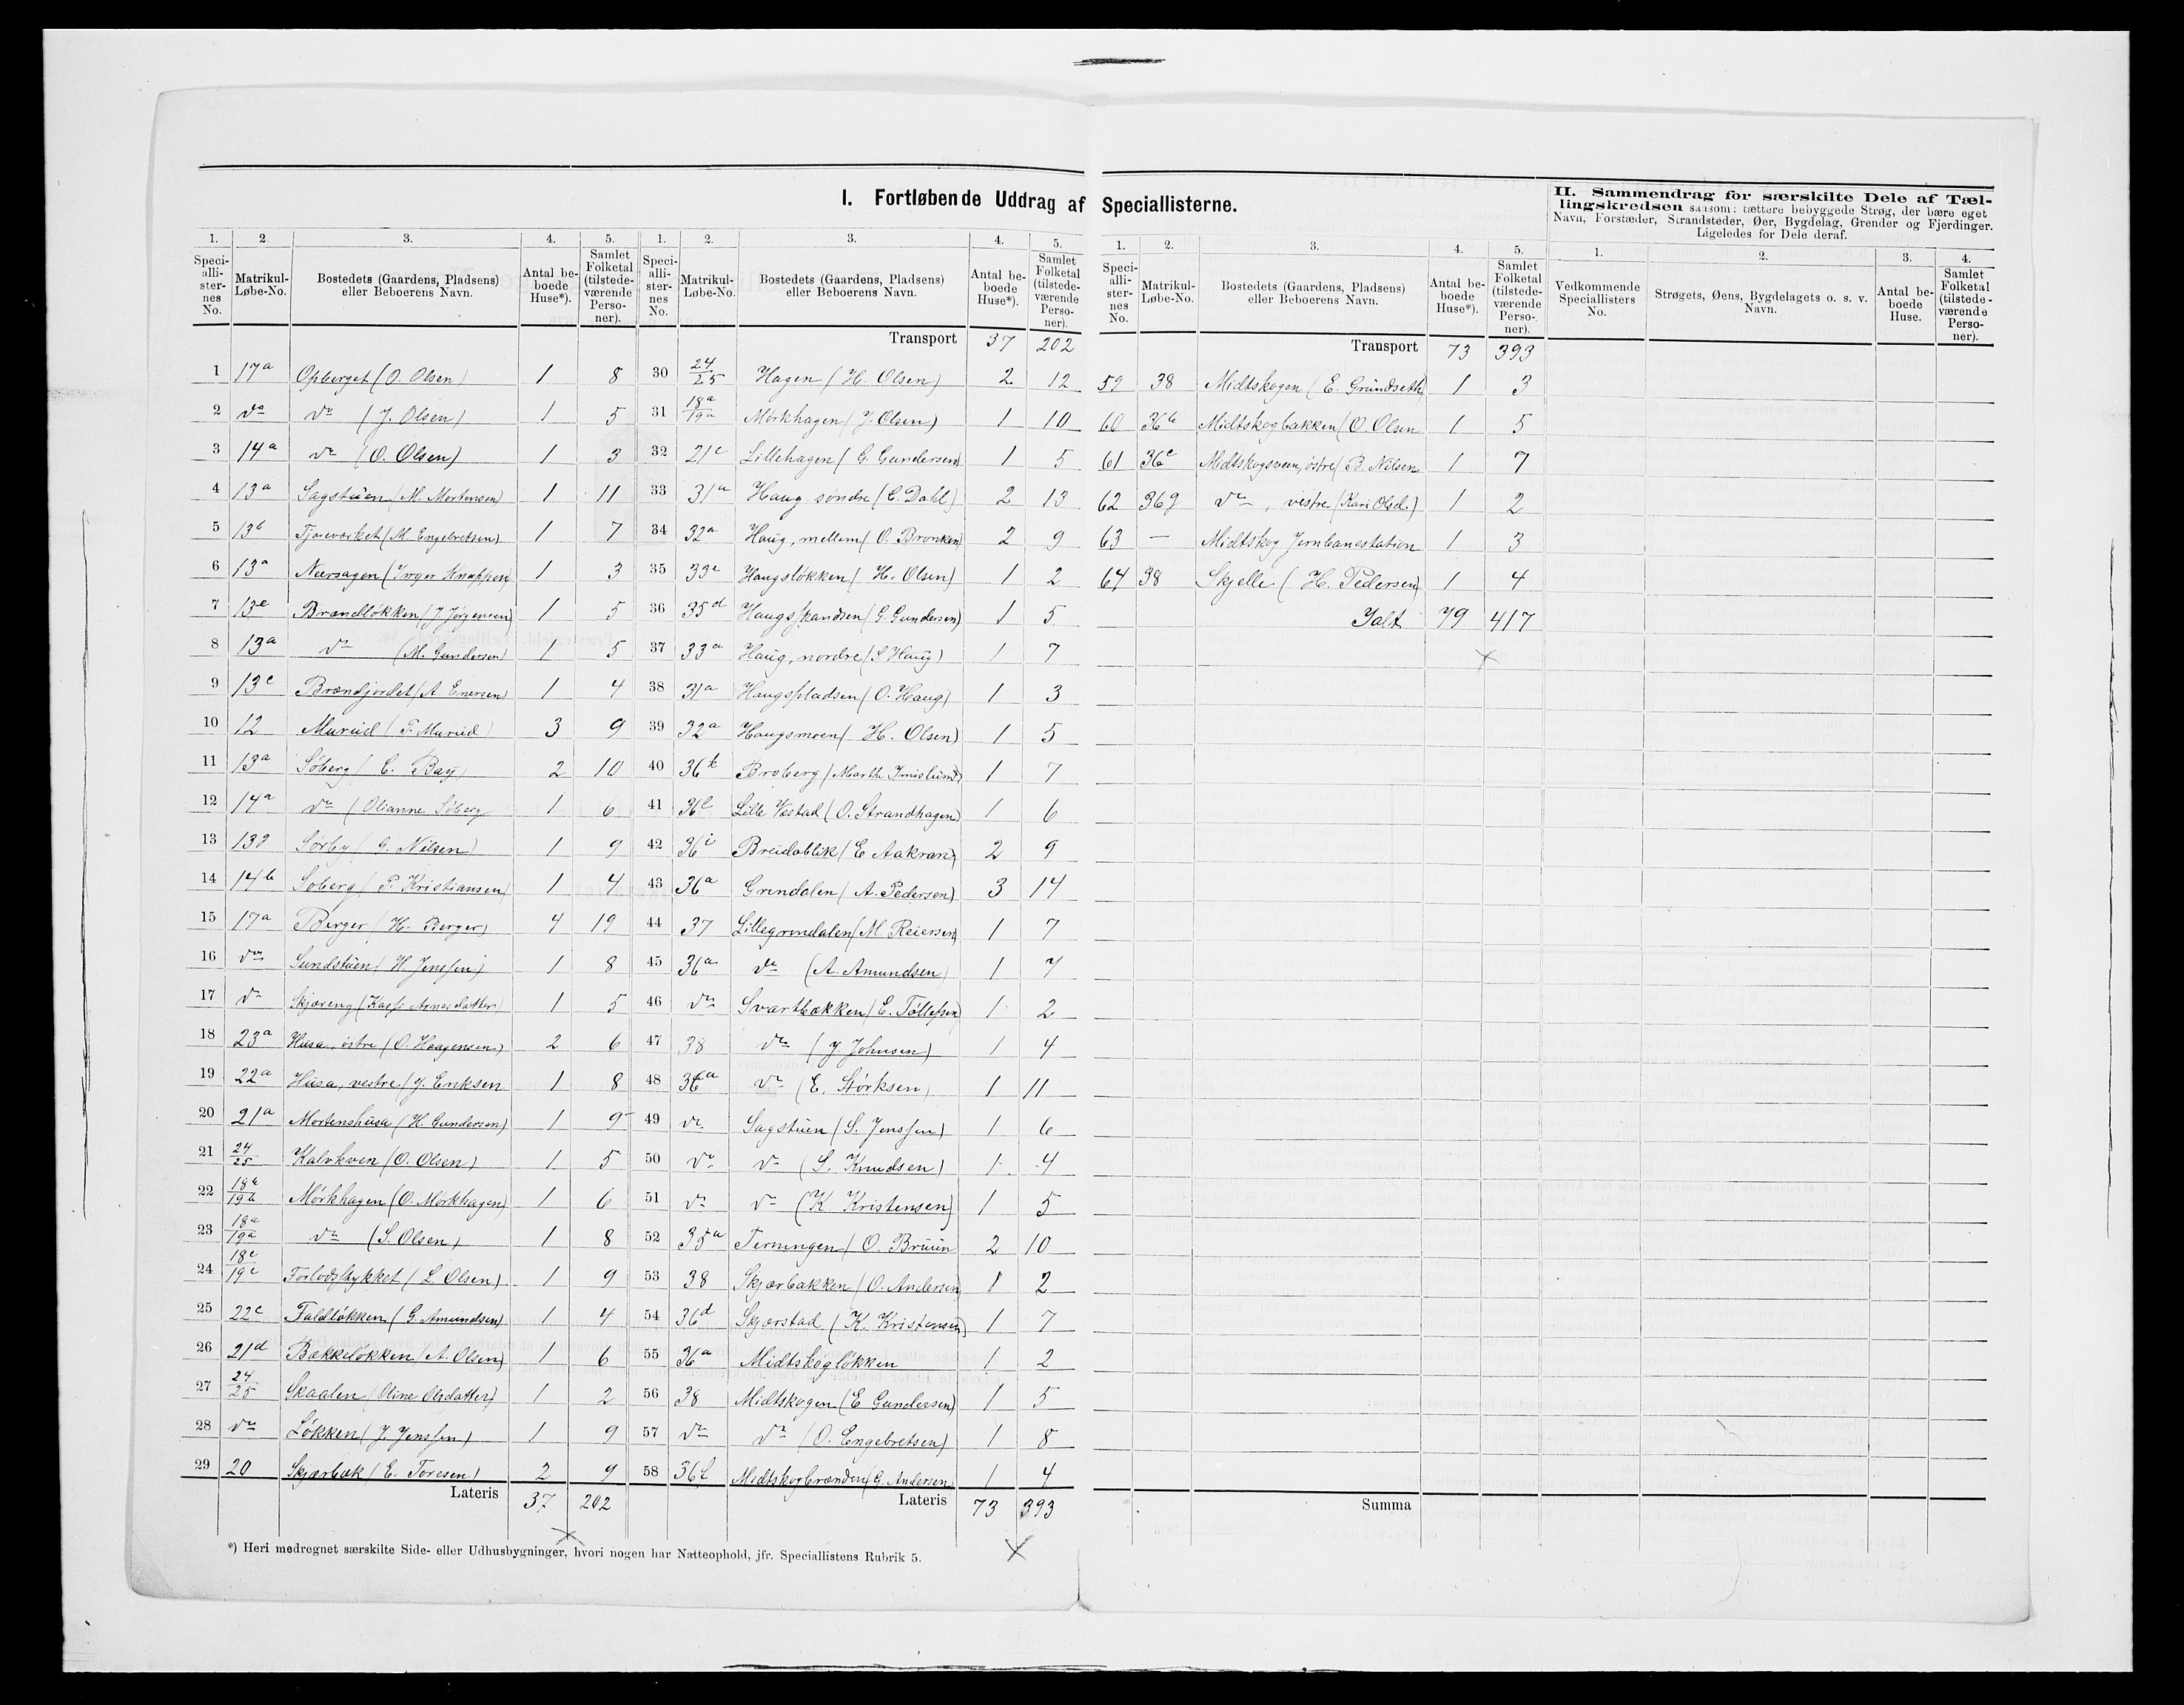 I. Fortløbende Uddrag af Speciallisterne.
II. Sammendrag for særskilte Dele af Tæl-
lingskredsen saasom: tættere bebyggede Strøg, der bære eget
Navn, Forstæder, Strandsteder, Øer, Bygdelag, Grender og Fjerdinger.
Ligeledes for Dele deraf.
1. 2. 3. 4. 5.
Speci-alli-ster-nes No. Matrikul-Løbe-No. Bostedets (Gaardens, Pladsens) eller Beboerens Navn. Antal be-boede Huse*). Samlet Folketal (tilstede-værende Perso-ner).
1 17a Opberget (O. Olsen) 1 8
2 do do (J. Olsen) 1 5
3 14a do (O. Olsen) 1 3
4 13a Sagstuen (M. Mortensen) 1 11
5 13b Tjæreværket (M. Engebretsen) 1 7
6 13a Nersagen (Inger Knapper) 1 3
7 13e Brændløkken (J. Jörgensen) 1 5
8 13a do (M. Gundersen) 1 5
9 13c Brændjordet (A. Enersen) 1 4
10 12 Murud (P. Murud) 3 9
11 13a Söberg (C. Bay) 2 10
12 14a do (Olianne Söberg 1 6
13 13g Sörby (G. Nilsen) 1 9
14 14b Söberg (P. Kristiansen) 1 4
15 17a Berger (H. Berger) 4 19
16 do Sundstuen (H. Jenssen) 1 8
17 do Skjæreng (Kari Arnesdatter) 1 5
18 23a Husa, östre (O. Haagensen) 2 6
19 22a Husa, vestre (J. Eriksen 1 8
20 21a Mortenshusa (H. Gundersen) 1 9
21 24/25 Kalvkven (O. Olsen) 1 5
22 18b/19b Mörkhagen (O. Mörkhagen) 1 6
23 18a/19a do (S. Olsen) 1 8
24 18c/19c Forlodsstykket (L Olsen) 1 9
25 22c Faldlökken (G. Amundsen) 1 4
26 21d Bakkelökken (A. Olsen) 1 6
27 24/25 Skaalen (Oline Olsdatter) 1 2
28 do Lökken (J. Jenssen) 1 9
29 20 Skjærbæk (E. Toresen) 2 9
Lateris 37 202
1. 2. 3. 4. 5.
Speci-alli-ster-nes No. Matrikul-Løbe-No. Bostedets (Gaardens, Pladsens) eller Beboerens Navn. Antal be-boede Huse*). Samlet Folketal (tilstede-værende Perso-ner).
Transport 37 202
30 24/25 Hagen (H. Olsen) 2 12
31 18a/19a Mörkhagen (J. Olsen) 1 10
32 21c Lillehagen (G. Gundersen) 1 5
33 31a Haug, söndre (C. Dahl) 2 13
34 32a Haug, mellem (O. Bronken) 2 9
35 33c Haugslökken (H. Olsen) 1 2
36 35d Haugsskandsen (G. Gundersen) 1 5
37 33a Haug, nordre (S Haug) 1 7
38 31a Haugspladsen (O. Haug) 1 3
39 32a Haugsmoen (H. Olsen) 1 5
40 36k Broberg (Marthe Imislund) 1 7
41 36l Lille Vestad (O. Strandhagen) 1 6
42 36i Breidablik (E Aakran) 2 9
43 36a Grindalen (A. Pedersen) 3 14
44 37 Lillegrindalen (M. Reiersen) 1 7
45 36a do (A. Amundsen) 1 7
46 do Svartbækken (E. Tollefsen) 1 2
47 38 do (J Johnsen) 1 4
48 36a do (E. Störksen) 1 11
49 do Sagstuen (S. Jenssen) 1 6
50 do do (S. Knudsen) 1 4
51 do do (K Kristensen) 1 5
52 35a Terningen (O. Bruun 2 10
53 38 Skjærbakken (O. Andersen) 1 2
54 36d Skjærstad (K. Kristensen) 1 7
55 36a Midtskoglökken 1 2
56 38 Midtskogen (E Gundersen) 1 5
57 do do (O. Engebretsen) 1 8
58 36f Midtskogbrænden (G. Andersen 1 4
Lateris 73 393
1. 2. 3. 4. 5.
Speci-alli-ster-nes No. Matrikul-Løbe-No. Bostedets (Gaardens, Pladsens) eller Beboerens Navn. Antal be-boede Huse*). Samlet Folketal (tilstede-værende Perso-ner).
Transport 73 393
59 38 Midtskogen (E. Grundseth) 1 3
60 36b Midtskogbakken (O. Olsen 1 5
61 36e Midtskogsveen, östre (B. Nilsen 1 7
62 36g do, vestre (Kari Olsd.) 1 2
63 — Midtskog Jernbanestation 1 3
64 38 Skjelle (H. Pedersen) 1 4
Ialt 79 417
Summa
1. 2. 3. 4.
Vedkommende Speciallisters No. Strøgets, Øens, Bygdelagets o. s. v. Navn. Antal be-boede Huse. Samlet Folketal (tilstede-værende Perso-ner).
*) Heri medregnet særskilte Side- eller Udhusbygninger, hvori nogen har Natteophold, jfr. Speciallistens Rubrik 5.